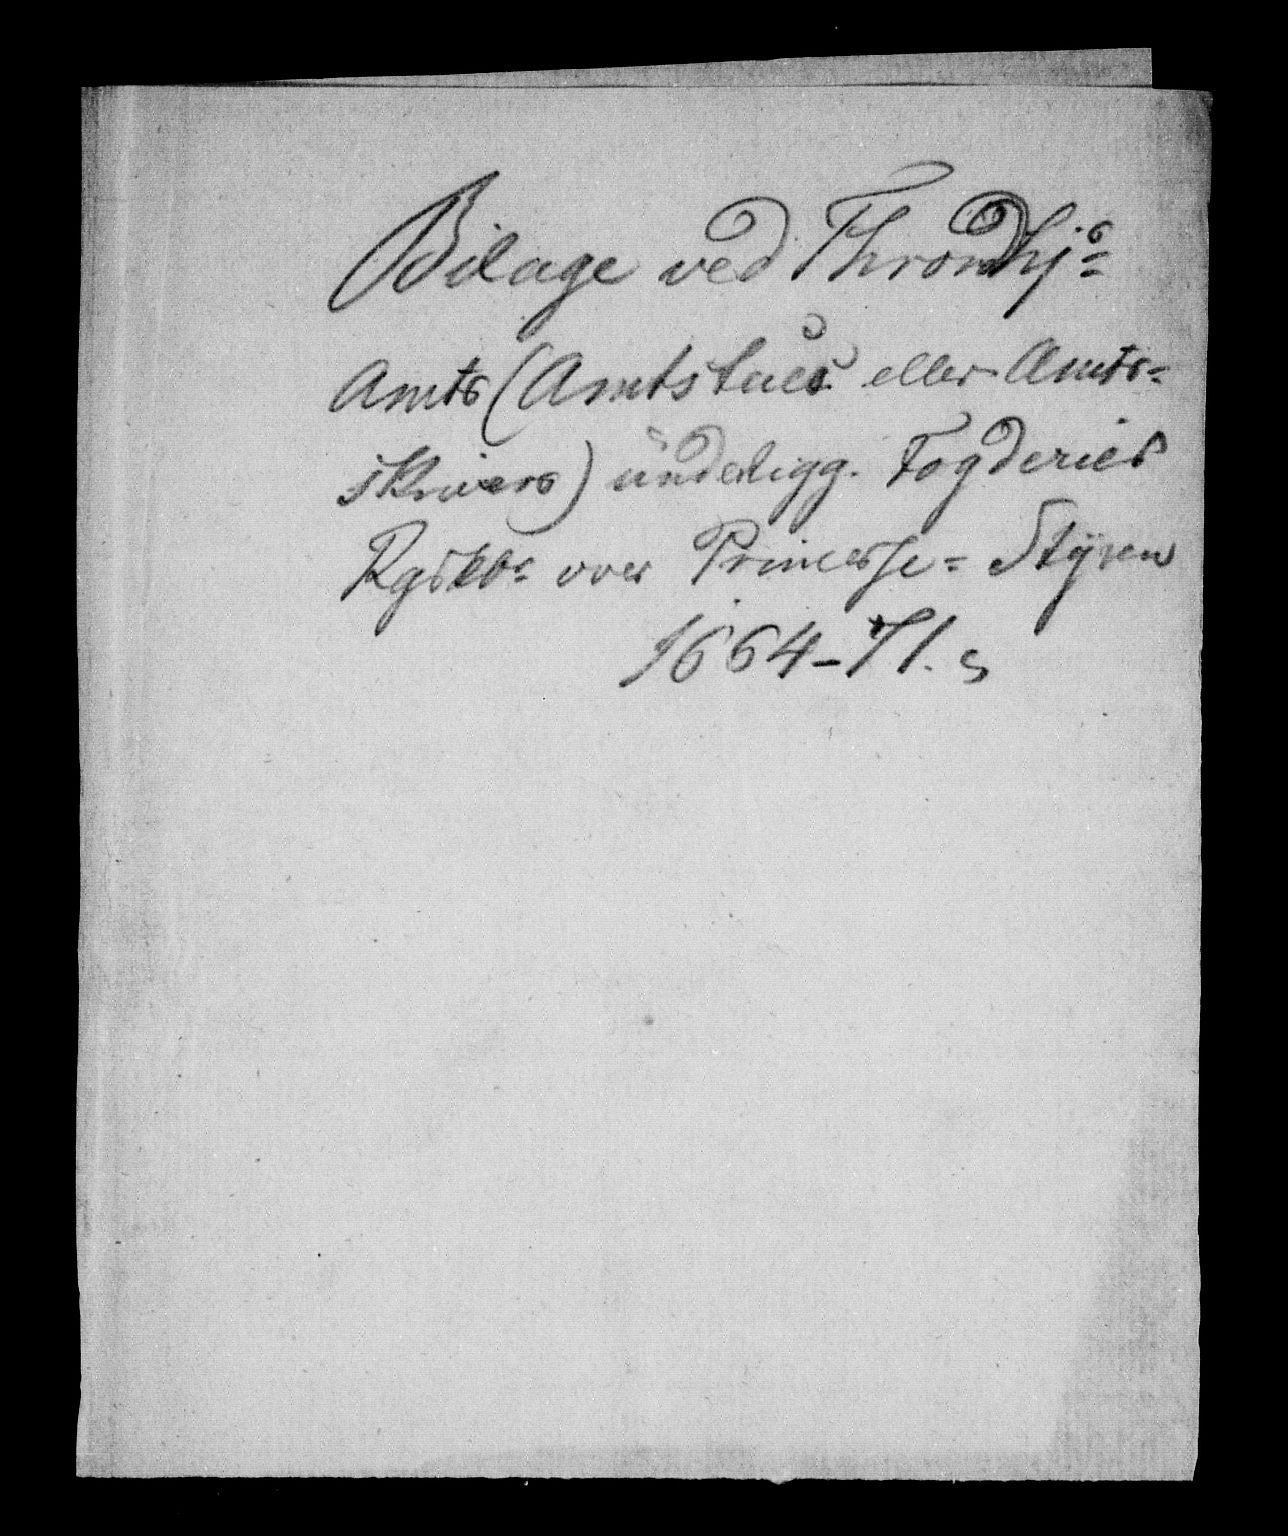 Bilage ved Throndhjs
Amts (Amtstues eller Amts=
skrivers) ünderligg. Fogderies
Rgskbr over Princesse= Styren
1664-71.